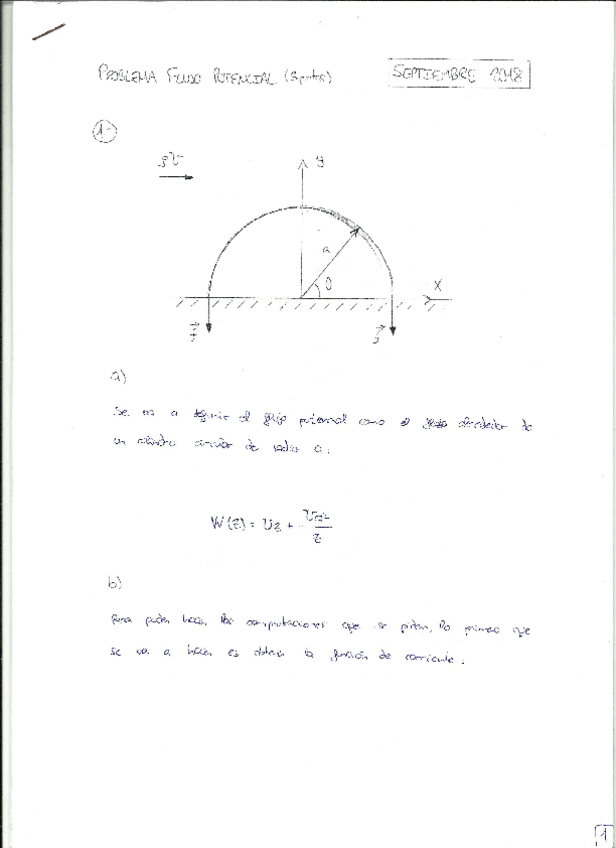 PROBLEMA FLUJO POTENCIAL (3 puntos)
SEPTIEMBRE 2018
1-
y
a
θ
X
a)
Se va a definir el flujo potencial como el flujo alrededor de
un cilindro circular de radio a:
W(z) = Uz + Ua²/z
b)
Para poder hacer las comprobaciones que se piden, lo primero que
se va a hacer es obtener la función de corriente.
1